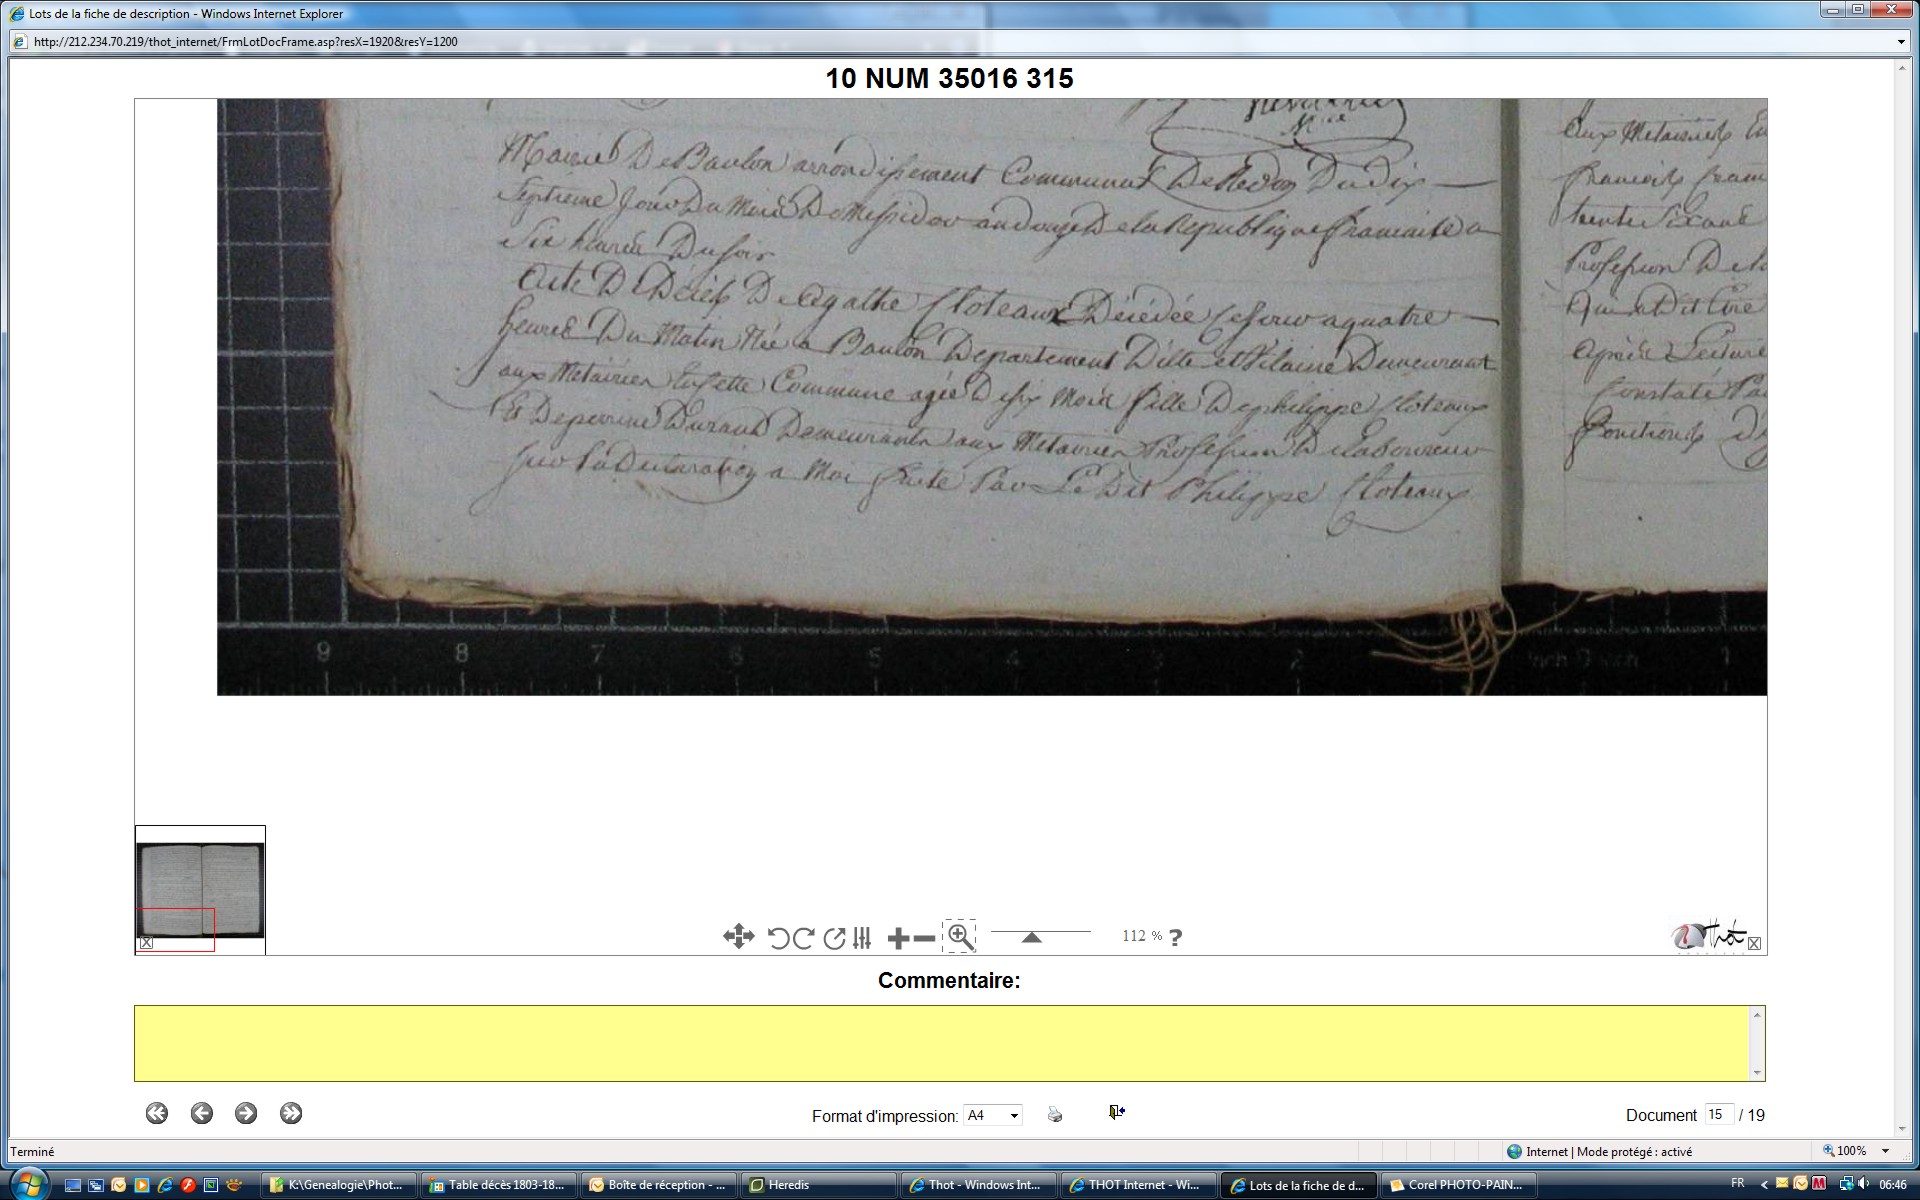 Lots de la fiche de description - Windows Internet Explorer
http://212.234.70.219/thot_internet/FrmLotDocFrame.asp?resX=1920&resY=1200
10 NUM 35016 315
Mairie De Baulon arrondissement Communal De Redon Du dix
Septieme Jour Du Mois De Messidor an douze De la Republique francaise a
Six heures Du soir
Acte De Décès De Agathe Cloteaux Décédée Ce Jour a quatre
heures Du Matin Née a Baulon Departement D'ille et Vilaine Demeurant
aux Metairies En cette Commune agée De six Mois fille De philippe Cloteaux
Et De perrine Durand Demeurants aux Metairies Profession De laboureur
Sur la Declaration a Moi faite Par Le Dit Philippe Cloteaux
aux Metairies
francois
trente Six ans
Profession De la
Qui a Dit Etre
Après Lecture
Constaté
fonctions
9 8 7 6 5 4 3 2 1
112 % ?
Thot
Commentaire:
Format d'impression: A4
Document 15 / 19
Terminé
Internet | Mode protégé : activé
100%
K:\Genealogie\Phot...
Table décès 1803-18...
Boîte de réception - ...
Heredis
Thot - Windows Int...
THOT Internet - Wi...
Lots de la fiche de d...
Corel PHOTO-PAIN...
FR
06:46